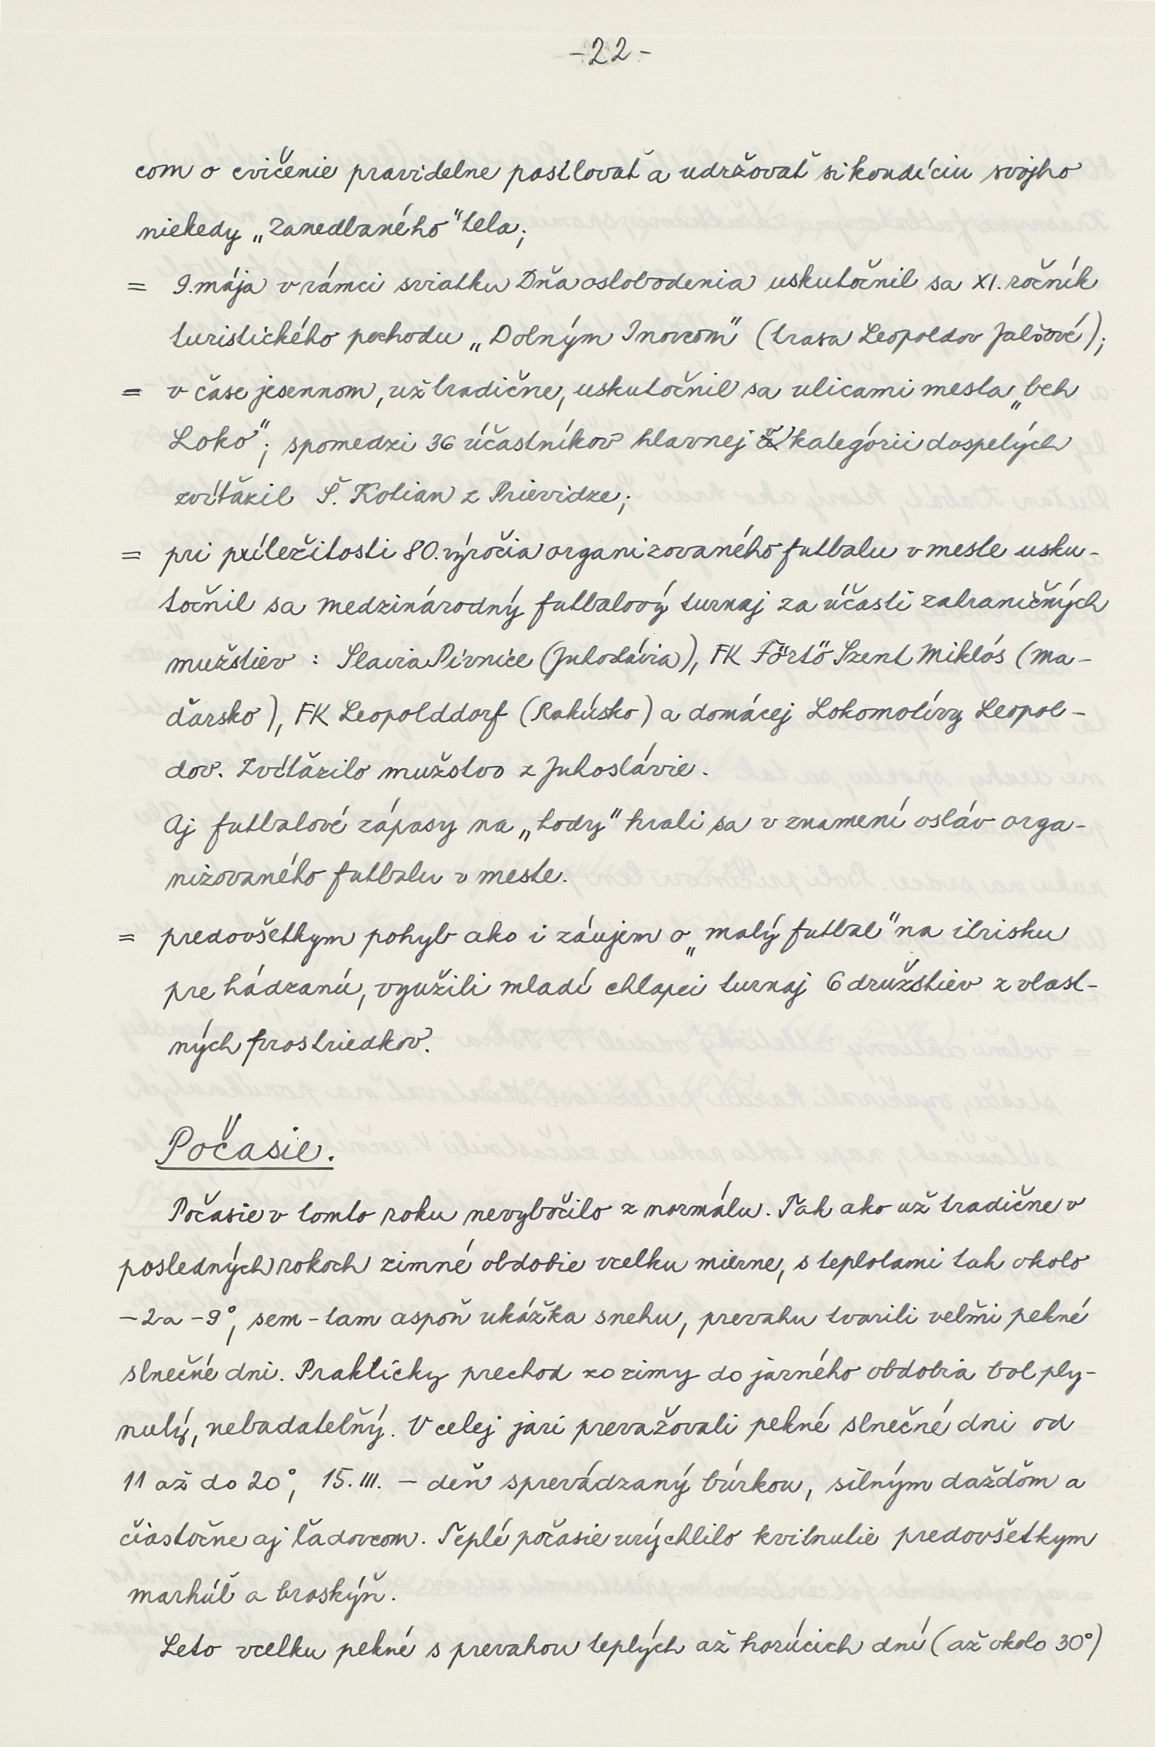 -22-
com o cvičenie pravidelne posilovať a udržovať si kondíciu svojho
niekedy „zanedbaného" tela;
= 9. mája v rámci sviatku Dňa oslobodenia uskutočnil sa XI. ročník
turistického pochodu „Dolným Inovcom" (trasa Leopoldov Jalšové);
= v čase jesennom, už tradične, uskutočnil sa ulicami mesta „beh
Loko"; spomedzi 36 účastníkov hlavnej kategórii dospelých
zvíťazil Š. Kolian z Prievidze;
= pri príležitosti 80. výročia organizovaného futbalu v meste usku-
točnil sa medzinárodný futbalový turnaj za účasti zahraničných
mužstiev : Slavia Pivnice (Juhoslávia), FK Förtö Szent Miklós (Ma-
ďarsko), FK Leopolddorf (Rakúsko) a domácej Lokomotívy Leopol-
dov. Zvíťazilo mužstvo z Juhoslávie.
Aj futbalové zápasy na „hody" hrali sa v znamení osláv orga-
nizovaného futbalu v meste.
= predovšetkym pohyb ako i záujem o „malý futbal" na ihrisku
pre hádzanú, využili mladí chlapci turnaj 6 družstiev z vlast-
ných prostriedkov.
Počasie.
Počasie v tomto roku nevybočilo z normálu. Tak ako už tradične v
posledných rokoch zimné obdobie vcelku mierne, s teplotami tak okolo
-2 a -9°, sem-tam aspoň ukážka snehu, prevahu tvorili veľmi pekné
slnečné dni. Prakticky prechod zo zimy do jarného obdobia bol ply-
nulý, nebadateľný. V celej jari prevažovali pekné slnečné dni od
11 až do 20°, 15. III. - deň sprevádzaný búrkou, silným dažďom a
čiastočne aj ľadovcom. Teplé počasie urýchlilo kvitnutie predovšetkym
marhúľ a broskýň.
Leto vcelku pekné s prevahou teplých až horúcich dní (až okolo 30°)